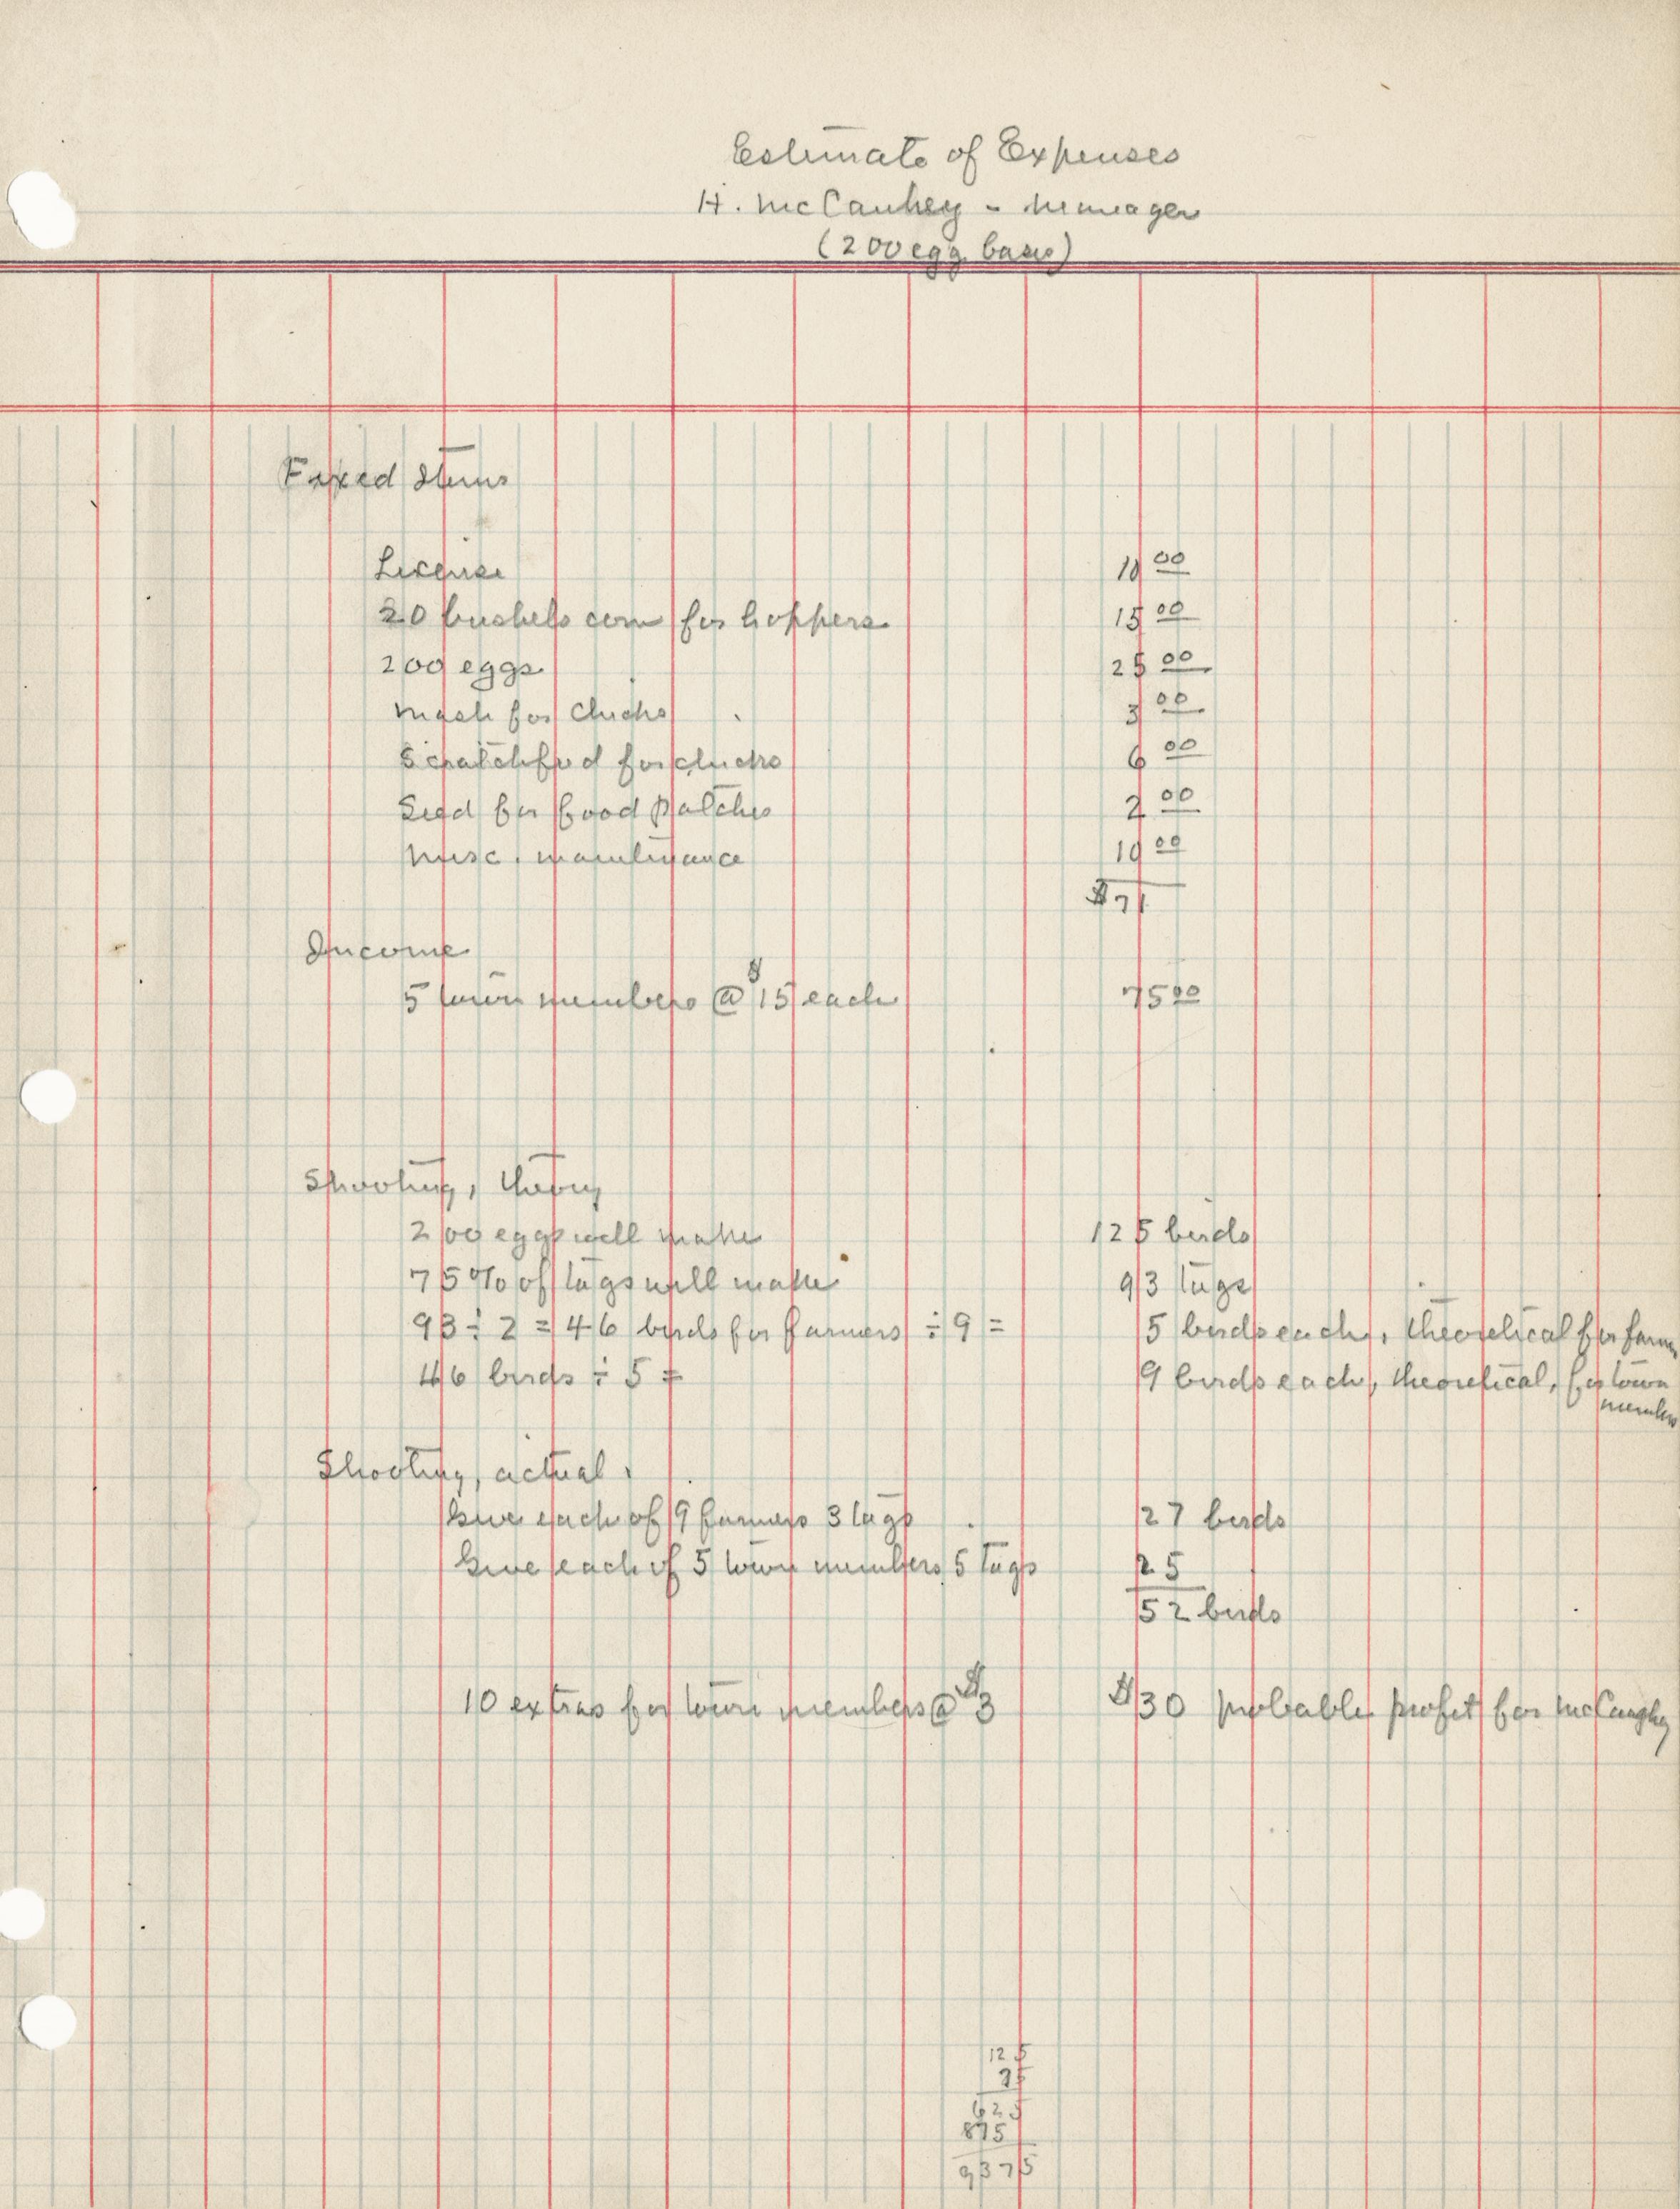 Estimate of Expenses
H. McCauhey - Manager
(200 egg basis)
Fixed Items
License 10 00
20 bushels corn for hoppers 15 00
200 eggs 25 00
Mash for chicks 3 00
Scratchfeed for chicks 6 00
Seed for food patches 2 00
Misc. maintenance 10 00
$71
Income
5 town members @ $15 each 75 00
Shooting, theory
200 eggs will make 125 birds
75% of tags will make 93 tags
93 ÷ 2 = 46 birds for farmers ÷ 9 = 5 birds each, theoretical for farm
46 birds ÷ 5 = 9 birds each, theoretical, for town
members
Shooting, actual.
Give each of 9 farmers 3 tags 27 birds
Give each of 5 town members 5 tags 25
52 birds
10 extras for town members @ $3 $30 probable profit for McCaughey
125
75
625
875
9375